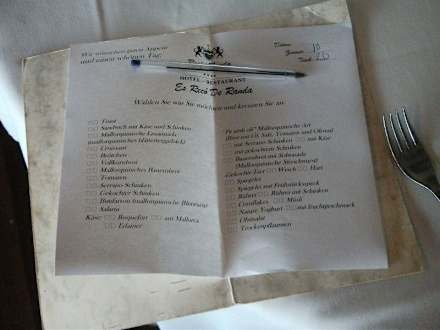 Wir wünschen guten Appetit
und einen schönen Tag.
Datum:
Zimmer: 10
Tisch: 20
HOTEL - RESTAURANT
Es Recó De Randa
Wählen Sie was Sie möchten und kreuzen Sie an.
Toast
Sandwich mit Käse und Schinken
Mallorquinische Ensaimada
(mallorquinisches blätterteiggebäck)
Croissant
Brötchen
Vollkornbrot
Mallorquinisches Bauernbrot
Tomaten
Serrano Schinken
Gekochter Schinken
Butifarron (mallorquinische Blutwurst)
Salami
Käse: Roquefort aus Mallorca
Edamer
Pa amb oli" Mallorquinische Art
(Brot mit Öl, Salz, Tomaten und Oliven)
mit Serrano Schinken mit Käse
mit gekochtem Schinken
Bauernbrot mit Sobrasada
(Mallorquinische Streichwurst)
Gekochter Eier: Weich Hart
Spiegelei
Spiegelei mit Frühstückspeck
Rührei Rührei mit Schinken
Cornflakes Müsli
Nature Yoghurt mit fruchtgeschmack
Obstsalat
Trockenpflaumen